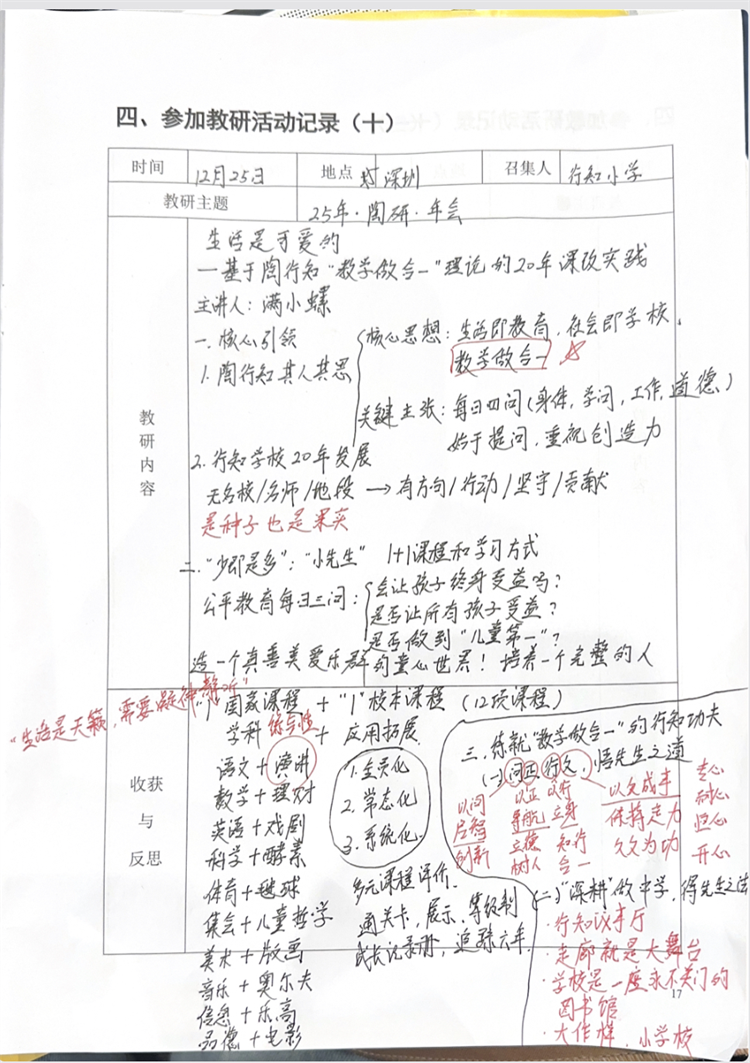 四、参加教研活动记录（十）
时间 12月25日 地点 深圳 召集人 行知小学
教研主题 25年·陶研·年会
教研内容
生活是可爱的
一基于陶行知"教学做合一"理论的20年课改实践
主讲人：满小螺
一.核心引领
核心思想：生活即教育，社会即学校，
教学做合一
1.陶行知其人其思
关键主张：每日四问(身体,学问,工作,道德)
始于提问，重视创造力
2.行知学校20年发展
无名校/名师/地段 → 有方向/行动/坚守/贡献
是种子也是果实
二."少即是多"："小先生" 1+1课程和学习方式
公平教育每日三问：
会让孩子终身受益吗？
是否让所有孩子受益？
是否做到"儿童第一"？
造一个真善美爱乐群的童心世界！培养一个完整的人
"生活是天籁，需要凝神静听"
收获与反思
"1"国家课程 + "1"校本课程（12项课程）
学科 + 应用拓展
语文+演讲
数学+理财
英语+戏剧
科学+酵素
体育+毽球
集会+儿童哲学
美术+版画
音乐+奥尔夫
信息+乐高
品德+电影
1.全员化
2.常态化
3.系统化
多元课程评价.
通关卡,展示,等级制
成长记录册，追踪六年.
三.练就"教学做合一"的行知功夫
(一)问正行久,悟先生之道
以问启智创新
以正导航立德树人
以行立身知行合一
以久成事保持定力久久为功
专心
耐心
恒心
开心
(二)"深耕"做中学，得先生之法
·行知议事厅
·走廊就是大舞台
·学校是一座永不关门的图书馆
·大作坊，小学校
17